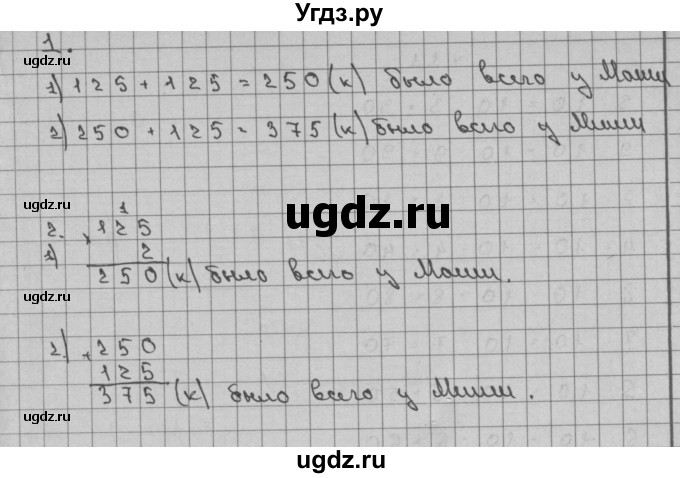 Угдз.ру
1.
1) 125 + 125 = 250 (к) было всего у Маши
2) 250 + 125 = 375 (к) было всего у Миши
ugdz.ru
ugdz.ru
ugdz.ru
2.
1) × 125
1
2
250 (к) было всего у Маши.
ugdz.ru
ugdz.ru
2) + 250
125
375 (к) было всего у Миши.
ugdz.ru
ugdz.ru
ugdz.ru